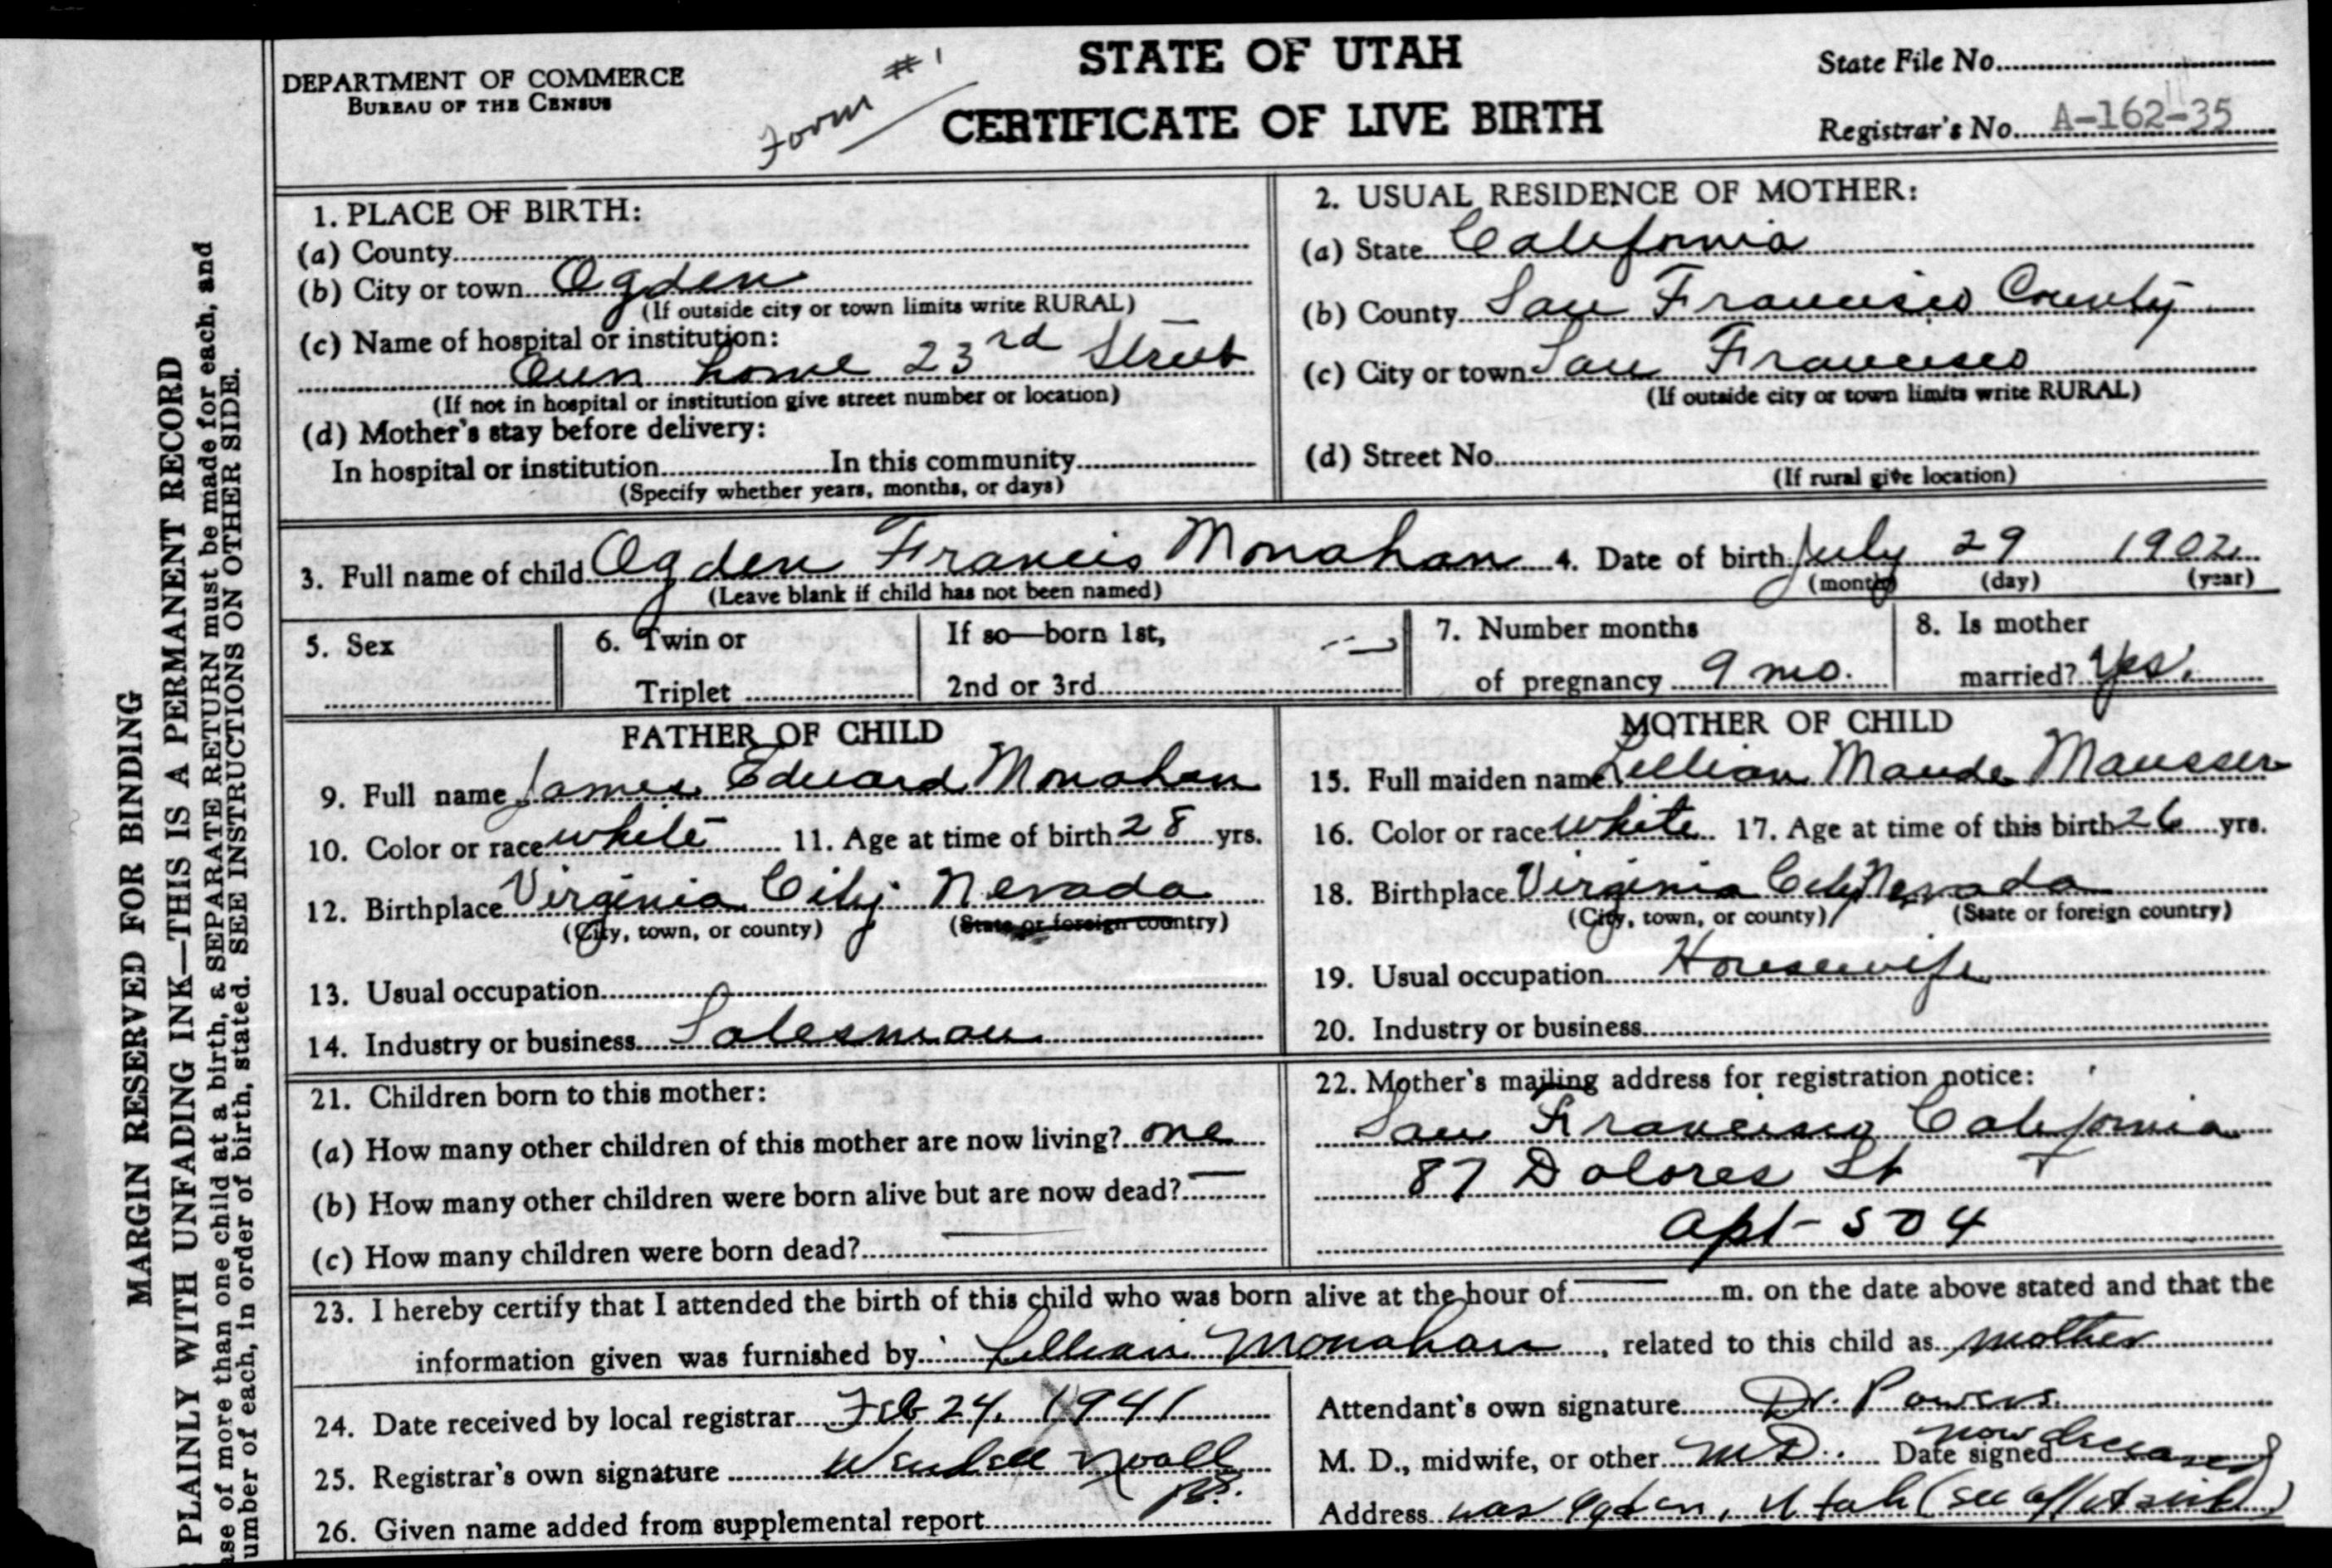 DEPARTMENT OF COMMERCE
BUREAU OF THE CENSUS
Form #1
STATE OF UTAH
CERTIFICATE OF LIVE BIRTH
State File No.
Registrar's No. A-162-35
MARGIN RESERVED FOR BINDING
PLAINLY WITH UNFADING INK—THIS IS A PERMANENT RECORD
ase of more than one child at a birth, a SEPARATE RETURN must be made for each, and
umber of each, in order of birth, stated. SEE INSTRUCTIONS ON OTHER SIDE.
1. PLACE OF BIRTH:
(a) County
(b) City or town Ogden
(If outside city or town limits write RURAL)
(c) Name of hospital or institution:
Own home 23rd Street
(If not in hospital or institution give street number or location)
(d) Mother's stay before delivery:
In hospital or institution In this community
(Specify whether years, months, or days)
2. USUAL RESIDENCE OF MOTHER:
(a) State California
(b) County San Francisco County
(c) City or town San Francisco
(If outside city or town limits write RURAL)
(d) Street No.
(If rural give location)
3. Full name of child Ogden Francis Monahan 4. Date of birth July 29 1902
(Leave blank if child has not been named) (month) (day) (year)
5. Sex
6. Twin or
Triplet
If so—born 1st,
2nd or 3rd
7. Number months
of pregnancy 9 mo.
8. Is mother
married? Yes.
FATHER OF CHILD
9. Full name James Edward Monahan
10. Color or race white 11. Age at time of birth 28 yrs.
12. Birthplace Virginia City Nevada
(City, town, or county) (State or foreign country)
13. Usual occupation
14. Industry or business Salesman
MOTHER OF CHILD
15. Full maiden name Lillian Maude Mausser
16. Color or race White 17. Age at time of this birth 26 yrs.
18. Birthplace Virginia City Nevada
(City, town, or county) (State or foreign country)
19. Usual occupation Housewife
20. Industry or business
21. Children born to this mother:
(a) How many other children of this mother are now living? one
(b) How many other children were born alive but are now dead? —
(c) How many children were born dead? —
22. Mother's mailing address for registration notice:
San Francisco California
87 Dolores St
Apt-504
23. I hereby certify that I attended the birth of this child who was born alive at the hour of — m. on the date above stated and that the
information given was furnished by Lillian Monahan, related to this child as mother
24. Date received by local registrar Feb 24, 1941
25. Registrar's own signature
26. Given name added from supplemental report
Attendant's own signature Dr. Powers
M. D., midwife, or other M D. Date signed now deceased
Address was Ogden, Utah (see affidavit)